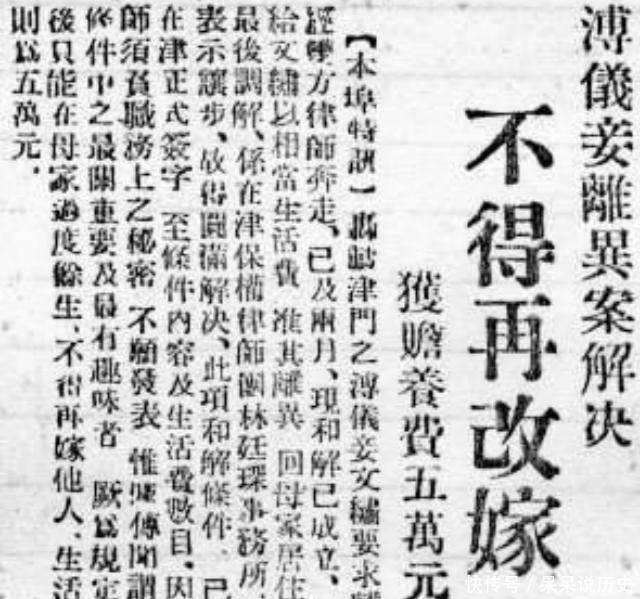 溥儀妾離異案解决
不得再改嫁
獲贍養費五萬元
【本埠特訊】轟動津門之溥儀妾文繡要求離
經雙方律師奔走、已及兩月、現和解已成立、
給文繡以相當生活費　准其離異　回母家居住
最後調解、係在津保權律師團林廷琛事務所、
表示讓步、故得圓滿解决、此項和解條件、已
在津正式簽字　至條件內容及生活費數目、因
師須負職務上之秘密　不願發表　惟據傳聞謂
條件中之最關重要及最有趣味者　厥爲規定
後只能在母家過度餘生、不得再嫁他人、生活
則爲五萬元、
快传号／果果说历史